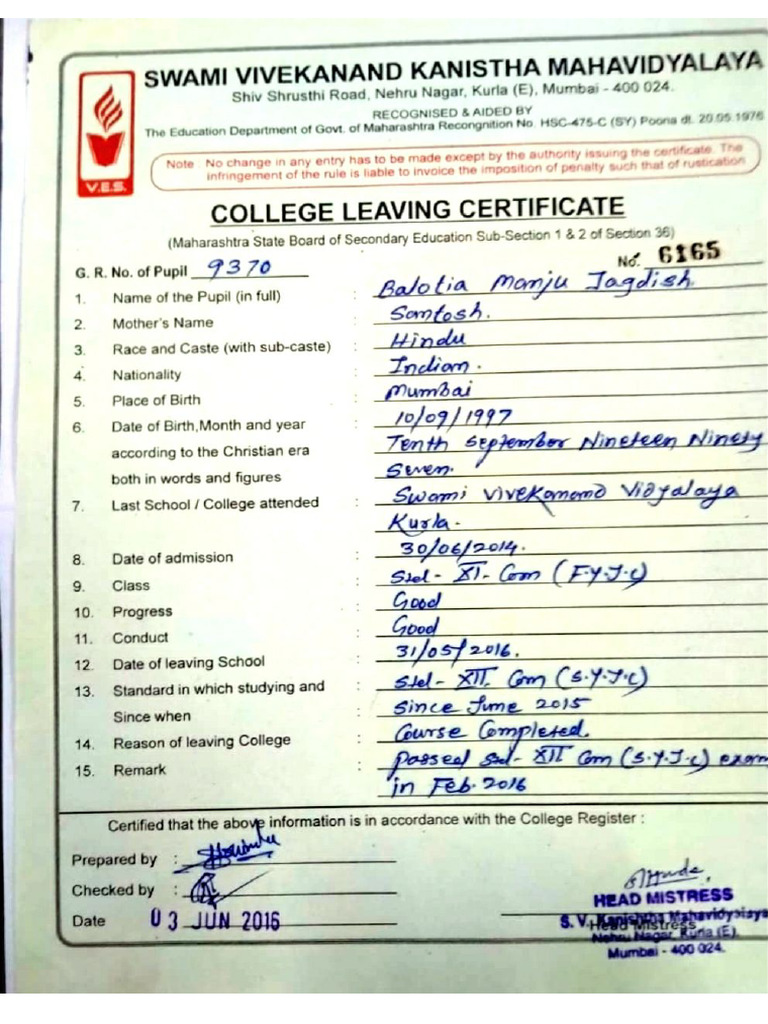 SWAMI VIVEKANAND KANISTHA MAHAVIDYALAYA
Shiv Shrusthi Road, Nehru Nagar, Kurla (E), Mumbai - 400 024.
RECOGNISED & AIDED BY
The Education Department of Govt. of Maharashtra Recongnition No. HSC-475-C (SY) Poona dt. 20.05.1976
V.E.S.
Note : No change in any entry has to be made except by the authority issuing the certificate. The
infringement of the rule is liable to invoice the imposition of penalty such that of rustication
COLLEGE LEAVING CERTIFICATE
(Maharashtra State Board of Secondary Education Sub-Section 1 & 2 of Section 36)
G. R. No. of Pupil 9370 No. 6165
1. Name of the Pupil (in full) : Balotia Manju Jagdish
2. Mother's Name : Santosh.
3. Race and Caste (with sub-caste) : Hindu
4. Nationality : Indian.
5. Place of Birth : Mumbai
6. Date of Birth,Month and year : 10/09/1997
according to the Christian era Tenth September Nineteen Ninety
both in words and figures Seven.
7. Last School / College attended : Swami Vivekanand Vidyalaya
Kurla.
8. Date of admission : 30/06/2014.
9. Class : Std- XI- Com (F.Y.J.C)
10. Progress : Good
11. Conduct : Good
12. Date of leaving School : 31/05/2016.
13. Standard in which studying and : Std- XII. Com (S.Y.J.C)
Since when : Since June 2015
14. Reason of leaving College : Course Completed.
15. Remark : Passed Std- XII Com (S.Y.J.C) exam
in Feb. 2016
Certified that the above information is in accordance with the College Register :
Prepared by :
Checked by :
Date 03 JUN 2016
HEAD MISTRESS
S. V. Kanishtha Mahavidyalaya
Head Mistress
Nehru Nagar, Kurla (E),
Mumbai - 400 024.